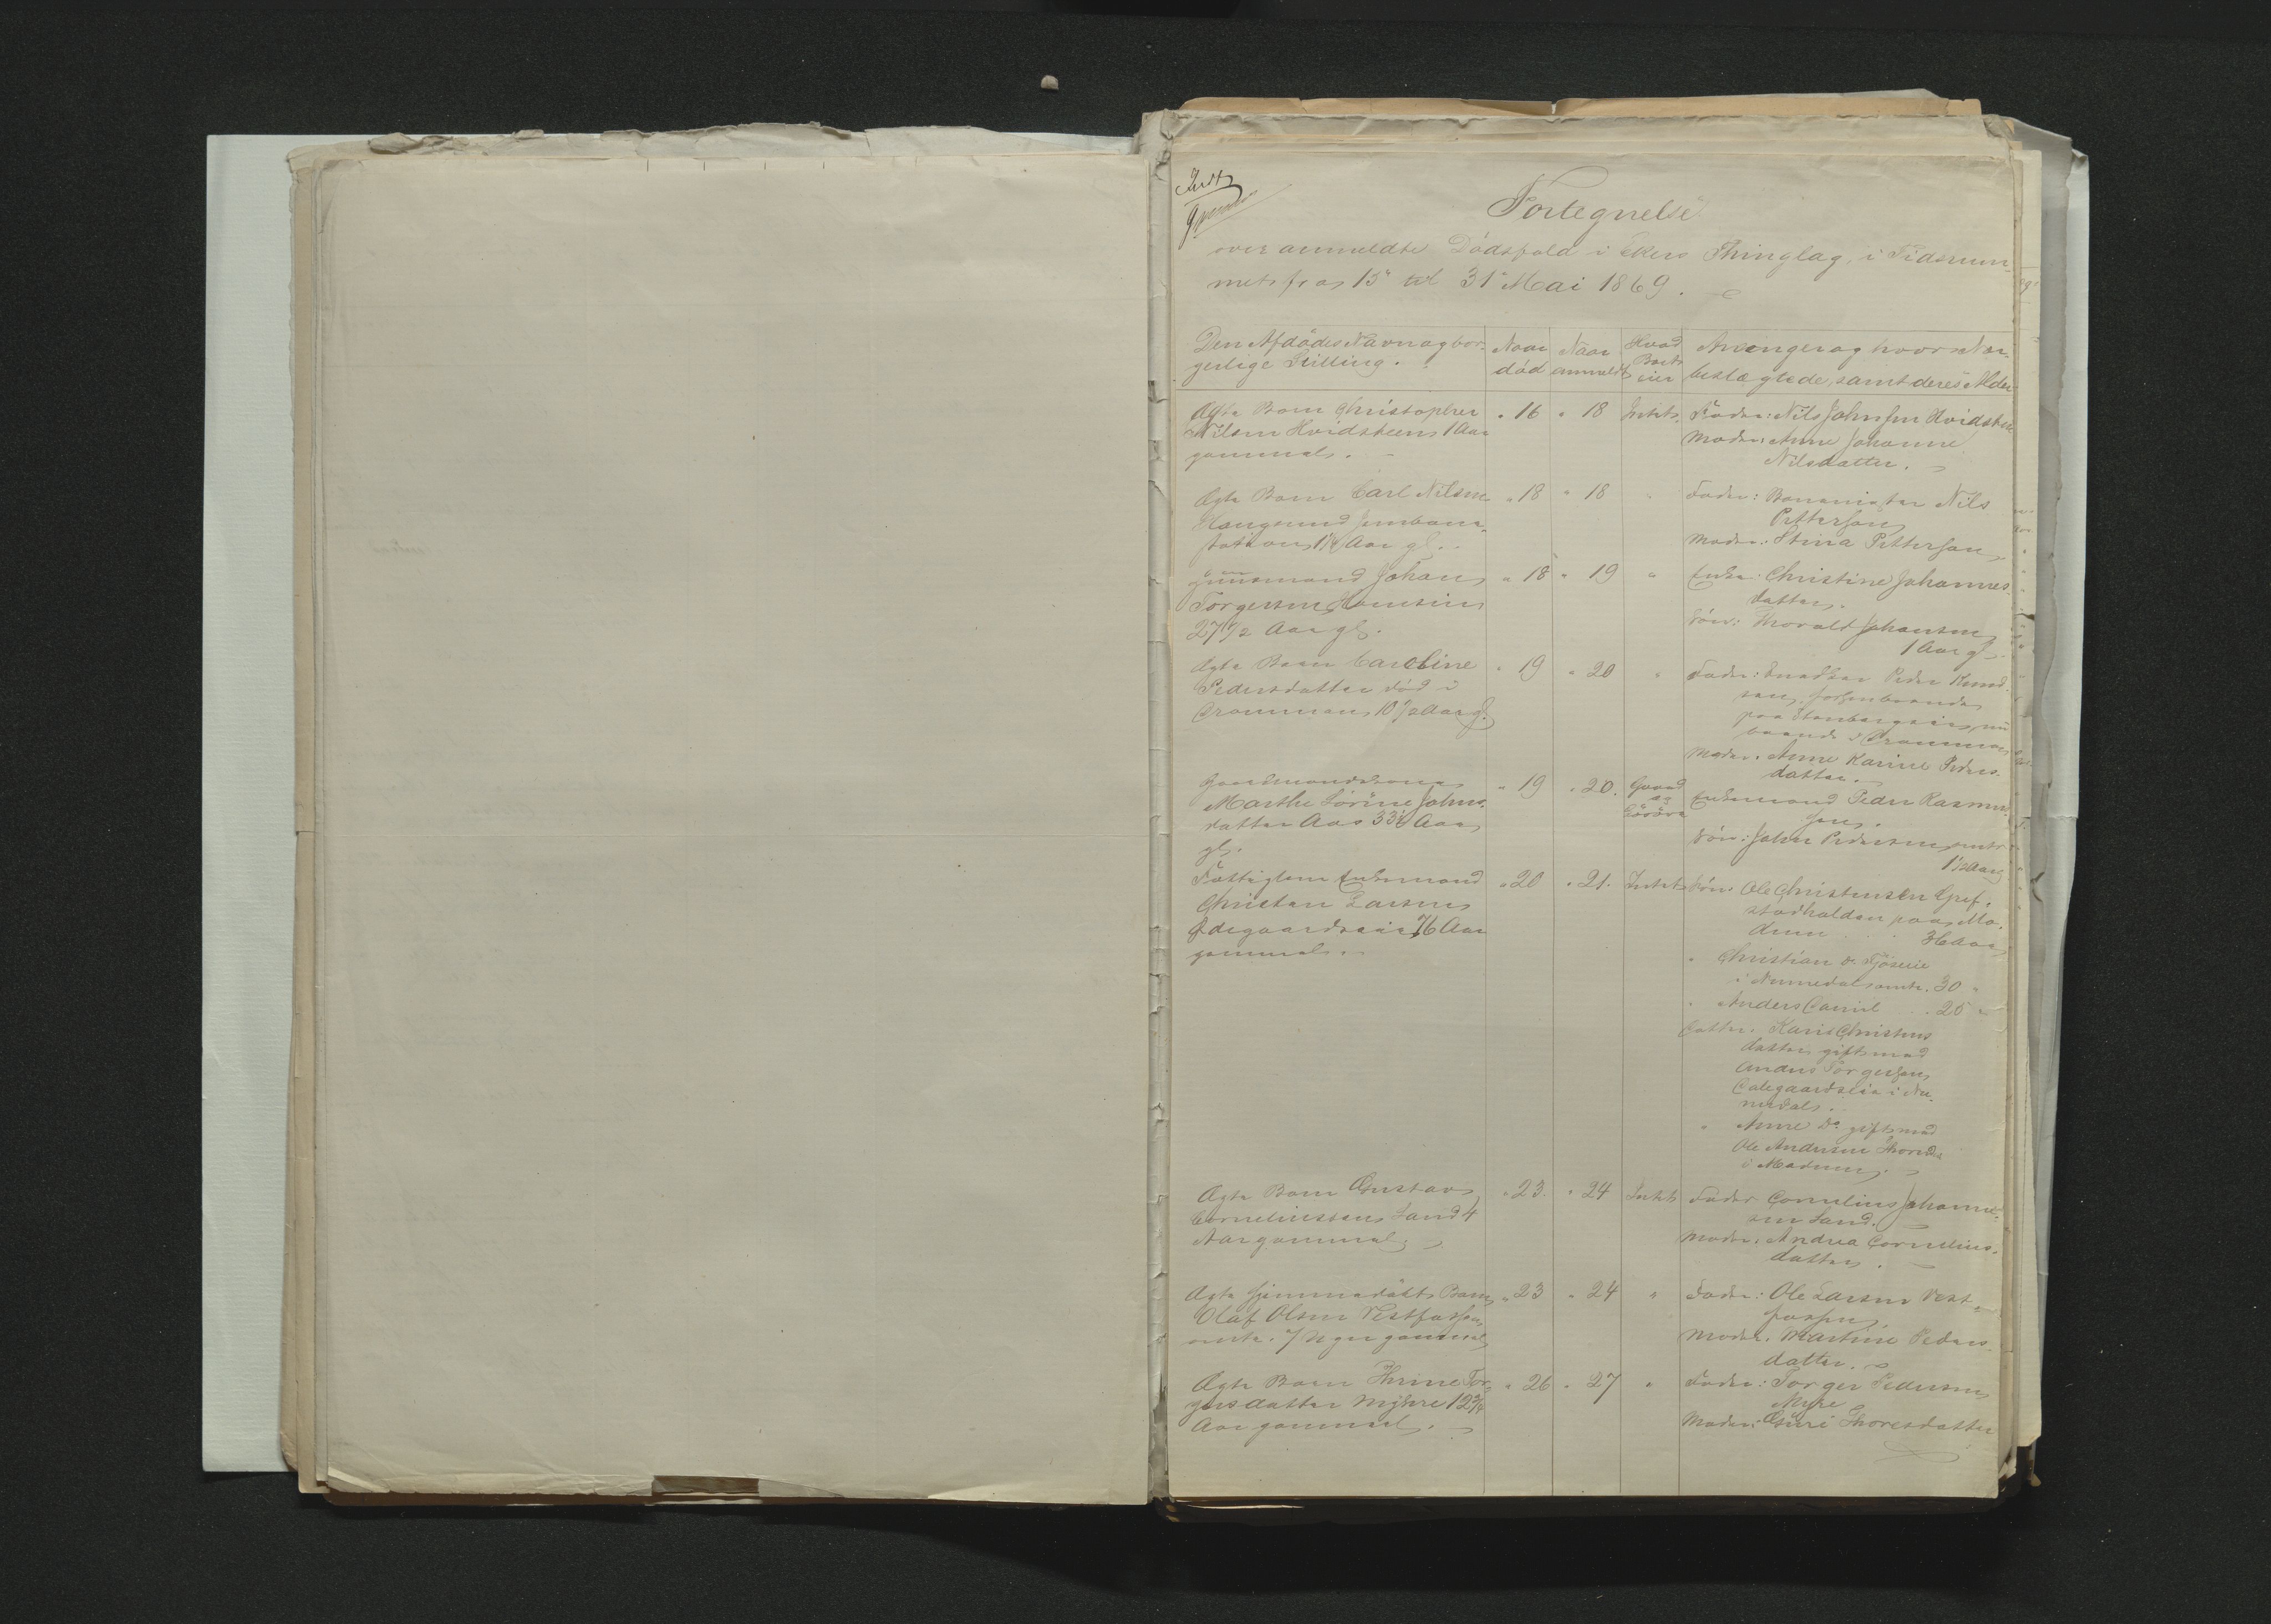 Fortegnelse
over anmeldte Dödsfald i Ekers Thinglag, i Tidsrum-
met fra 15de til 31te Mai 1869.
Den Afdödes Navn og bor-
gerlige Stilling.
Naar
död
Naar
anmeldt
Hvad
Boet
eier
Arvinger og hvor Nær-
beslægtede, samt deres Alder
Ægte Barn Christopher
Nilsen Hvidsteen 1 Aar
gammel.
" 16 " 18 Intet.
Fader: Nils Johnsen Hvidsteen
Moder: Anne Johanne
Nilsdatter.
Ægte Barn Carl Nilsen
Haugsund Jernbane-
station 1½ Aar gl.
" 18 " 18 "
Fader: Banemester Nils
Petterson
Moder: Stina Petterson
Huusmand Johan
Torgersen
27½ Aar gl.
" 18 " 19 "
Enke: Christine Johannes-
datter.
Sön: Thorvald Johansen
1 Aar gl.
Ægte Barn Caroline
Pedersdatter död i
Drammen 10½ Aar gl.
" 19 " 20 "
Fader: Snedker Peder Knud-
sen, forhen boende
paa Stenbergeie, nu
boende i Drammen
Moder: Anne Karine Peders-
datter.
Gaardmandskone
Marthe Sörine Johns-
datter Aas 33½ Aar
gl.
" 19 " 20. Gaard
og
Lösöre
Enkemand Peder Rasmus-
sen.
Sön: John Pedersen
1½ Aar
Fattiglem Enkemand
Christen Larsen
Ödegaardseie 76 Aar
gammel.
" 20 " 21. Intet
Sön: Ole Christensen
paa Mo-
dum 36 Aar
" Christian Do
i Numedal 30 "
" Anders Camil 25 "
Datter: Kari Christens-
datter gift med
Anders Torgersen
i Nu-
medal.
" Anne Do gift med
Ole Andersen
i Modum.
Ægte Barn Gustav
Corneliussen Sand 4
Aar gammel.
" 23. " 24 Intet
Fader Cornelius Johanne-
sen Sand.
Moder: Andrea Cornelius-
datter.
Ægte hjemmedöbt Barn
Olaf Olsen Vestfossen
7 Uger gammel
" 23 " 24 "
Fader: Ole Larsen Vest-
fossen
Moder: Martine Peders-
datter.
Ægte Barn Thrine Tor-
gersdatter Myhre 12¾
Aar gammel.
" 26 " 27 "
Fader: Torger Pedersen
Myre
Moder: Guri Thoresdatter